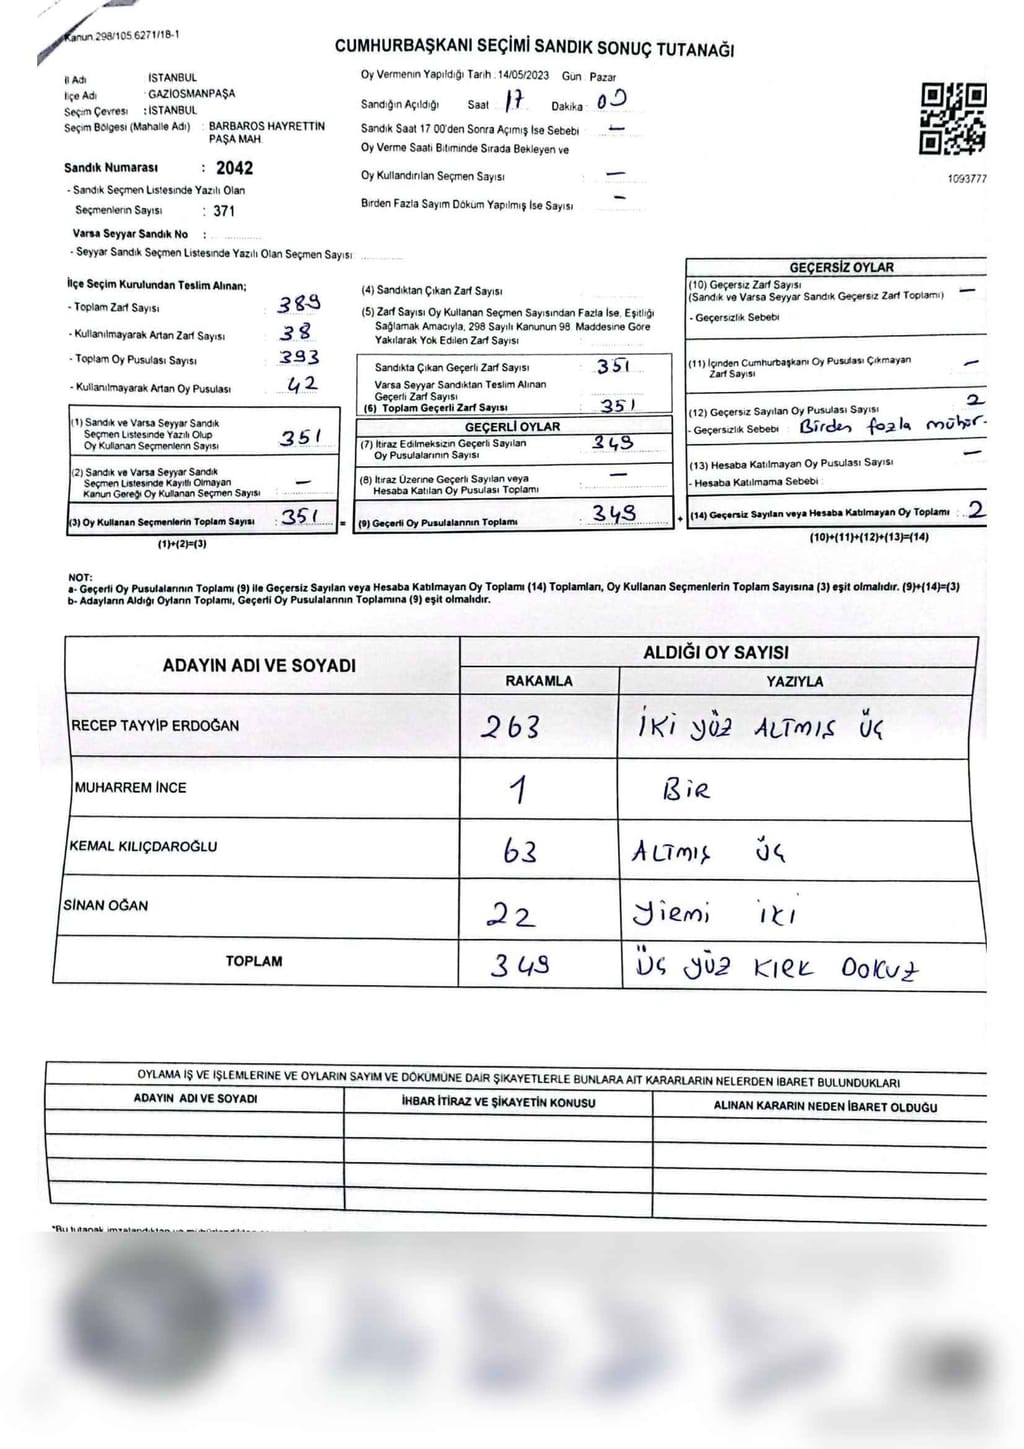 Kanun.298/105.6271/18-1
CUMHURBAŞKANI SEÇİMİ SANDIK SONUÇ TUTANAĞI
İl Adı İSTANBUL
İlçe Adı : GAZİOSMANPAŞA
Seçim Çevresi : İSTANBUL
Seçim Bölgesi (Mahalle Adı) : BARBAROS HAYRETTİN
PAŞA MAH.
Sandık Numarası : 2042
- Sandık Seçmen Listesinde Yazılı Olan
Seçmenlerin Sayısı : 371
Varsa Seyyar Sandık No :
- Seyyar Sandık Seçmen Listesinde Yazılı Olan Seçmen Sayısı :
Oy Vermenin Yapıldığı Tarih : 14/05/2023 Gün : Pazar
Sandığın Açıldığı Saat 17 Dakika : 00
Sandık Saat 17 00'den Sonra Açımış İse Sebebi : —
Oy Verme Saati Bitiminde Sırada Bekleyen ve
Oy Kullandırılan Seçmen Sayısı : —
Birden Fazla Sayım Döküm Yapılmış İse Sayısı : —
1093777
İlçe Seçim Kurulundan Teslim Alınan;
- Toplam Zarf Sayısı : 389
- Kullanılmayarak Artan Zarf Sayısı : 38
- Toplam Oy Pusulası Sayısı : 393
- Kullanılmayarak Artan Oy Pusulası : 42
(1) Sandık ve Varsa Seyyar Sandık
Seçmen Listesinde Yazılı Olup
Oy Kullanan Seçmenlerin Sayısı : 351
(2) Sandık ve Varsa Seyyar Sandık
Seçmen Listesinde Kayıtlı Olmayan
Kanun Gereği Oy Kullanan Seçmen Sayısı : —
(3) Oy Kullanan Seçmenlerin Toplam Sayısı : 351
(1)+(2)=(3)
(4) Sandıktan Çıkan Zarf Sayısı
(5) Zarf Sayısı Oy Kullanan Seçmen Sayısından Fazla İse, Eşitliği
Sağlamak Amacıyla, 298 Sayılı Kanunun 98. Maddesine Göre
Yakılarak Yok Edilen Zarf Sayısı :
Sandıkta Çıkan Geçerli Zarf Sayısı : 351
Varsa Seyyar Sandıktan Teslim Alınan
Geçerli Zarf Sayısı
(6) Toplam Geçerli Zarf Sayısı : 351
GEÇERLİ OYLAR
(7) İtiraz Edilmeksizin Geçerli Sayılan : 349
Oy Pusulalarının Sayısı
(8) İtiraz Üzerine Geçerli Sayılan veya : —
Hesaba Katılan Oy Pusulası Toplamı
= (9) Geçerli Oy Pusulalarının Toplamı : 349
GEÇERSİZ OYLAR
(10) Geçersiz Zarf Sayısı —
(Sandık ve Varsa Seyyar Sandık Geçersiz Zarf Toplamı) :
- Geçersizlik Sebebi :
(11) İçinden Cumhurbaşkanı Oy Pusulası Çıkmayan —
Zarf Sayısı
(12) Geçersiz Sayılan Oy Pusulası Sayısı : 2
- Geçersizlik Sebebi : Birden fazla mühür.
(13) Hesaba Katılmayan Oy Pusulası Sayısı —
- Hesaba Katılmama Sebebi :
+ (14) Geçersiz Sayılan veya Hesaba Katılmayan Oy Toplamı : 2
(10)+(11)+(12)+(13)=(14)
NOT:
a- Geçerli Oy Pusulalarının Toplamı (9) ile Geçersiz Sayılan veya Hesaba Katılmayan Oy Toplamı (14) Toplamları, Oy Kullanan Seçmenlerin Toplam Sayısına (3) eşit olmalıdır. (9)+(14)=(3)
b- Adayların Aldığı Oyların Toplamı, Geçerli Oy Pusulalarının Toplamına (9) eşit olmalıdır.
ADAYIN ADI VE SOYADI ALDIĞI OY SAYISI
RAKAMLA YAZIYLA
RECEP TAYYİP ERDOĞAN 263 İKİ YÜZ ALTMIŞ ÜÇ
MUHARREM İNCE 1 BİR
KEMAL KILIÇDAROĞLU 63 ALTMIŞ ÜÇ
SİNAN OĞAN 22 yiemi iki
TOPLAM 349 ÜÇ YÜZ KIRK DOKUZ
OYLAMA İŞ VE İŞLEMLERİNE VE OYLARIN SAYIM VE DÖKÜMÜNE DAİR ŞİKAYETLERLE BUNLARA AİT KARARLARIN NELERDEN İBARET BULUNDUKLARI
ADAYIN ADI VE SOYADI İHBAR İTİRAZ VE ŞİKAYETİN KONUSU ALINAN KARARIN NEDEN İBARET OLDUĞU
*Bu tutanak imzalandıktan ve